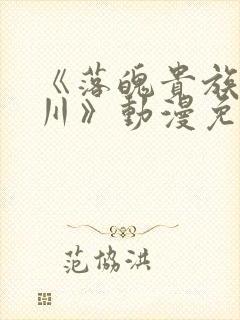 《落魄貴族
川》動漫免
范協洪